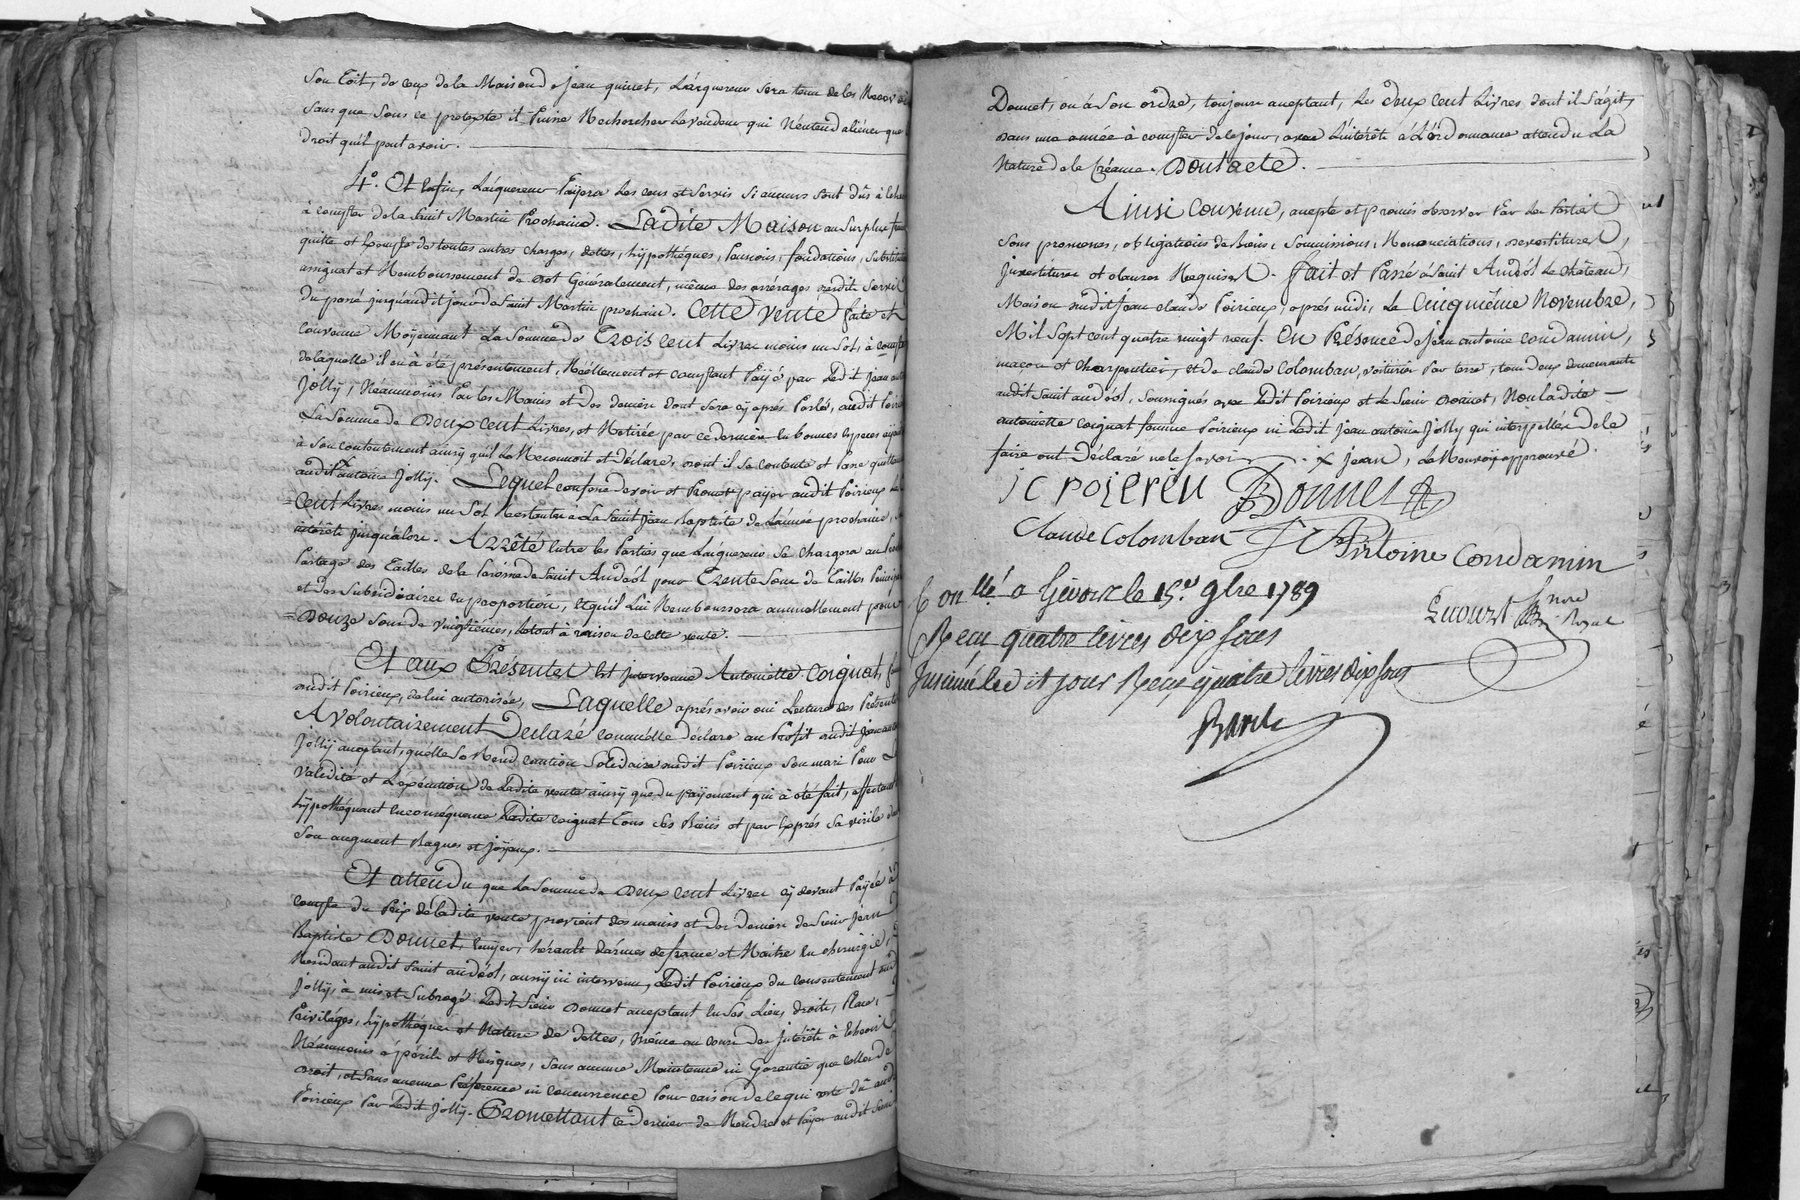 Son toit, de ceux de la Maison de jean quinet, L'acquereur sera tenu de les Recevoir
Sans que Sous ce pretexte il Puisse Rechercher Le vendeur qui N'entend aliéner que le
droit qu'il peut avoir.
4°. Et Enfin, L'acquereur Païyera Les cens et Servis Si aucuns Sont dûs à l'eche
à compter de la Saint Martin Prochaine. Ladite Maison au Surplus franche
quitte et Exempte de toutes autres charges, dettes, hÿpothéques, Pensions, fondations, Substitu
assignat et Remboursement de dot Généralement, même des arrérages desdit Servis
Du passé jusqu'audit jour de Saint Martin prochain. Cette vente faite et
convenue Moÿennant La Somme de Trois cent Livres moins un Sol, à compte
de laquelle il en à été présentement, Réellement et comptant Païyé par Ledit Jean antoine
Jollÿ, Néanmoins Par les Mains et des deniers dont Sera cÿ aprés Parlé, audit Poirieux
La Somme de Deux cent Livres, et Retirée par ce dernier en bonnes Especes
à Son contentement ainsy qu'il Le Reconnoit et Déclare, dont il Se contente et Passe quittance
audit antoine Jollÿ. Lequel confesse devoir et Promet païyer audit Poirieux les
=cent Livres moins un Sol Restants à La Saint Jean Baptiste de L'année prochaine, sans
intérêts jusqu'alors. Arrêté Entre les Parties que L'acquereur Se chargera au Prochain
Partage des Tailles de la Paroisse de Saint Andéol pour Trente Sous de Tailles Principal
et des Subsidiaires En proportion, Et qu'il Lui Remboursera annuellement pour
=Douze Sous de Vingtièmes, Le tout à raison de cette vente.
Et aux Présentes Est Intervenue Antoinette Coignat, femme
audit Poirieux, de lui autorisée, Laquelle aprés avoir oui Lecture des Présentes
A volontairement Declaré comm'elle déclare au Profit audit Jean antoine
Jollÿ acceptant, qu'elle Se Rend caution Solidaire dudit Poirieux Son mari Pour La
validité et L'exécution de Ladite vente ainsÿ que du païyement qui à été fait, affectant et
hÿpothéquant En conséquence Ladite Coignat Tous Ses Biens et par Exprés Sa virile dans
Son augment Bagues et joÿaux.
Et attendu que La Somme de Deux cent Livres cÿ devant Païyée à
compte du Prix de ladite vente provient des mains et des deniers de Sieur Jean
Baptiste Donnet, Ecuÿer, hérault d'armes de france et Maitre En chirurgie,
Résidant audit Saint andéol, aussÿ ici intervenu, Ledit Poirieux du consentement dudit
Jollÿ, à mis et Subrogé Ledit Sieur Donnet acceptant En Ses Lieu, droits, Place,
Priviléges, hÿpothéques et Nature de dettes, même au cours des Intérêts à Echeoir
Néanmoins à périls et Risques, Sans aucune Maintenue ni Garantie que celles de
Droit, et Sans aucune Préférence ni concurrence Pour raison de ce qui reste dû audit
Poirieux Par Ledit Jollÿ. Promettant ce dernier de Rendre et Païyer audit Sieur
Donnet, ou à Son ordre, toujours acceptant, Les Deux cent Livres dont il S'agit,
Dans une année à compter de ce jour, avec L'intérêt à L'ordonnance attendu La
Nature de la Créance. Dont acte.
Ainsi Convenu, accepté et promis observer Par Les Parties
Sous promesses, obligations de Biens, Soummissions, Renonciations, devestitures,
Investitures et clauses Requises. Fait et Passé à Saint Andéol Le château,
Maison dudit Jean claude Poirieux, aprés midi, Le Cinquième Novembre,
Mil Sept cent quatre vingt neuf. En Présence de Jean antoine condamin,
macon et charpentier, et de claude Colomban, voiturier Par terre, tous deux demeurants
audit Saint andéol, Soussignés avec Ledit Poirieux et Le Sieur Donnet, Non Ladite
antoinette coignat femme Poirieux ni Ledit Jean antoine Jollÿ qui interpellés de le
faire ont Déclaré ne le Savoir. x jean, Le Renvoÿ approuvé.
JC POIERIEU Donnet
Claude Colomban Antoine Condamin
Con.llé a Givors le 15.e 9bre 1789
Recu quatre livres dix sous
Insinué led it jour Reçu quatre livres dix sous
nore
Royal